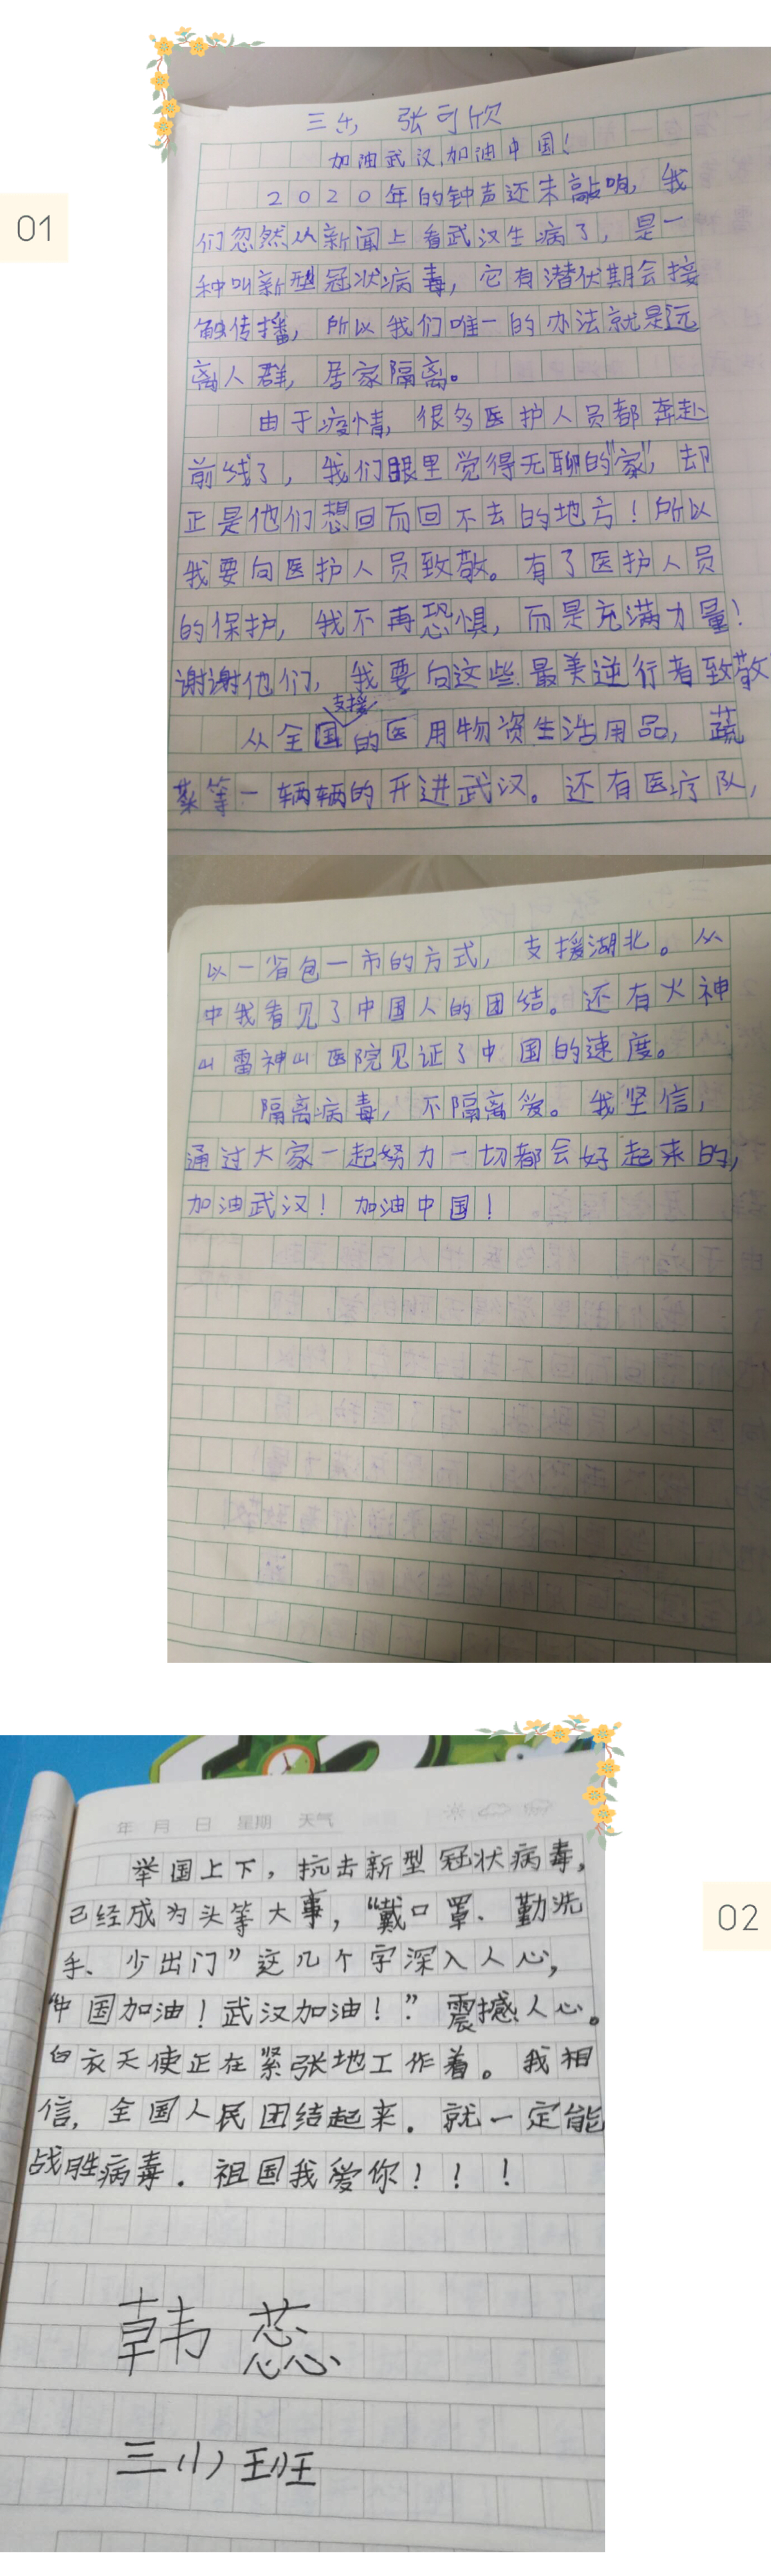 01
三 张可欣
加油武汉,加油中国!
2020年的钟声还未敲响,我
们忽然从新闻上看武汉生病了,是一
种叫新型冠状病毒,它有潜伏期会接
触传播,所以我们唯一的办法就是远
离人群,居家隔离。
由于疫情,很多医护人员都奔赴
前线了,我们眼里觉得无聊的“家”,却
正是他们想回而回不去的地方!所以
我要向医护人员致敬。有了医护人员
的保护,我不再恐惧,而是充满力量!
谢谢他们,我要向这些最美逆行者致敬
支援
从全国的医用物资生活用品,蔬
菜等一辆辆的开进武汉。还有医疗队,
以一省包一市的方式,支援湖北。从
中我看见了中国人的团结。还有火神
山雷神山医院见证了中国的速度。
隔离病毒,不隔离爱。我坚信,
通过大家一起努力一切都会好起来的,
加油武汉!加油中国!
02
年 月 日 星期 天气
举国上下,抗击新型冠状病毒,
已经成为头等大事,“戴口罩、勤洗
手、少出门”这几个字深入人心,
“中国加油!武汉加油!”震撼人心。
白衣天使正在紧张地工作着。我相
信,全国人民团结起来.就一定能
战胜病毒.祖国我爱你!!!
韩蕊
三(1)班